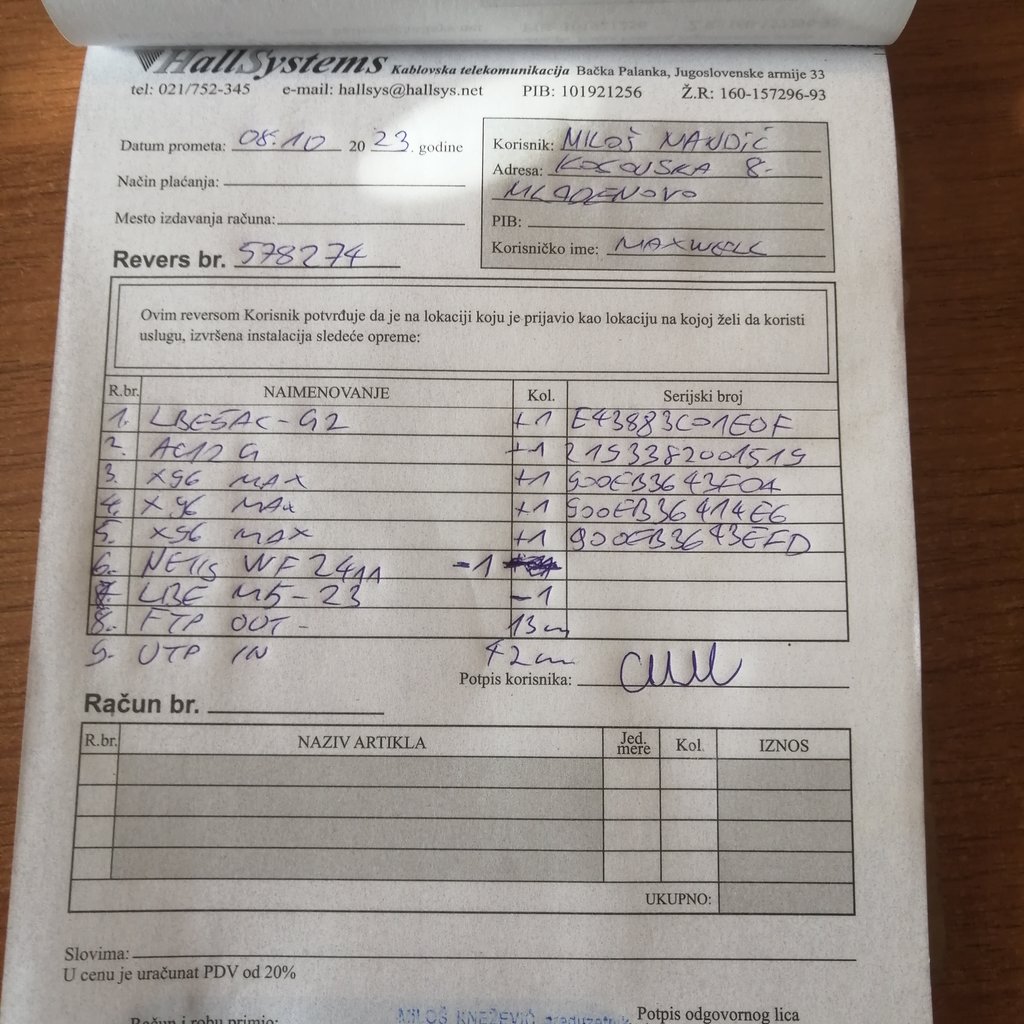 HallSystems Kablovska telekomunikacija Bačka Palanka, Jugoslovenske armije 33
tel: 021/752-345 e-mail: hallsys@hallsys.net PIB: 101921256 Ž.R: 160-157296-93
Datum prometa: 08.10 20 23. godine
Način plaćanja:
Mesto izdavanja računa:
Revers br. 578274
Korisnik: MILOŠ NANDIĆ
Adresa: KOSOVSKA 8.
MLADENOVO
PIB:
Korisničko ime: MAXWELL
Ovim reversom Korisnik potvrđuje da je na lokaciji koju je prijavio kao lokaciju na kojoj želi da koristi
uslugu, izvršena instalacija sledeće opreme:
R.br. NAIMENOVANJE Kol. Serijski broj
1. LBE5AC-G2 +1 E43883C01E0F
2. AC12 G +1 2193382001519
3. X96 MAX +1 900EB3643F0A
4. X96 MAX +1 900EB36414E6
5. X96 MAX +1 900EB3643EFD
6. NETIS WF2411 -1
7. LBE M5-23 -1
8. FTP OUT - 13m
9. UTP IN 42m
Potpis korisnika:
Račun br.
R.br. NAZIV ARTIKLA Jed. mere Kol. IZNOS
UKUPNO:
Slovima:
U cenu je uračunat PDV od 20%
Račun i robu primio: MILOŠ KNEŽEVIĆ preduzetnik Potpis odgovornog lica